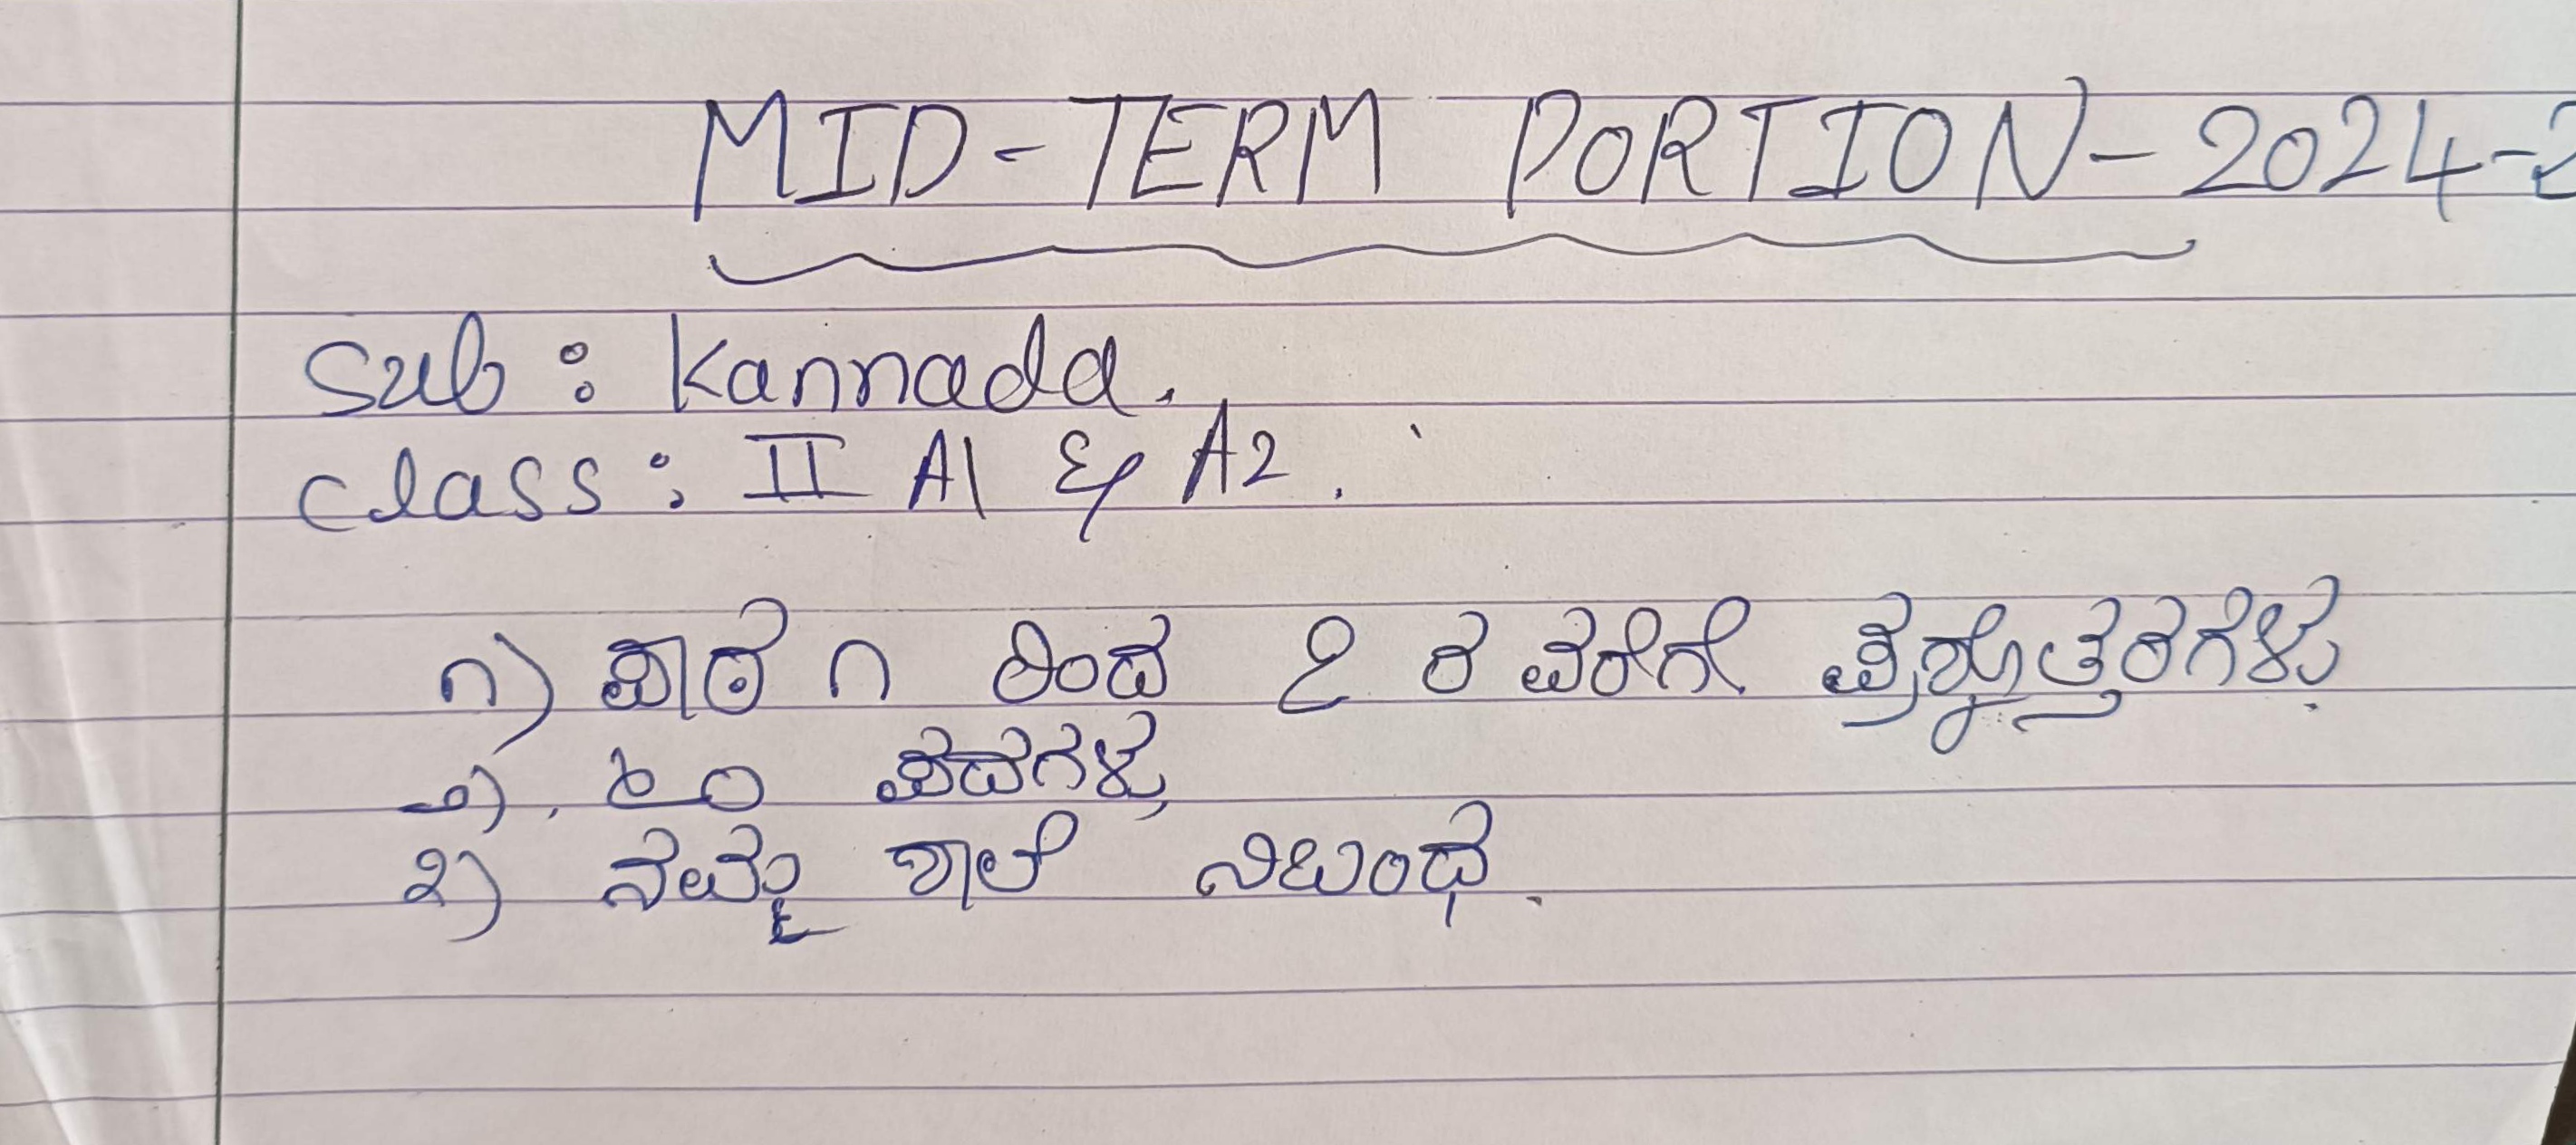 MID-TERM PORTION-2024-2
Sub: Kannada.
class: II A1 & A2.
೧) ಪಾಠ ೧ ರಿಂದ ೭ ರ ವರೆಗೇ ಪ್ರಶ್ನೋತ್ತರಗಳು.
೨). ೬೦ ಪದಗಳು
೩) ನಮ್ಮ ಶಾಲೆ ನಿಬಂಧ.